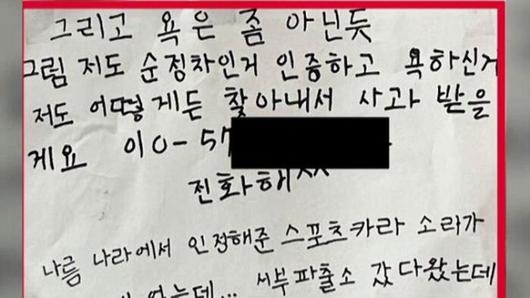 그리고 욕은 좀 아닌듯
그럼 저도 순정차인거 인증하고 욕하신거
저도 어떻게든 찾아내서 사과 받을
게요 010-57
전화해^^
나름 나라에서 인정해준 스포츠카라 소리가
없는데... 서부파출소 갔다왔는데